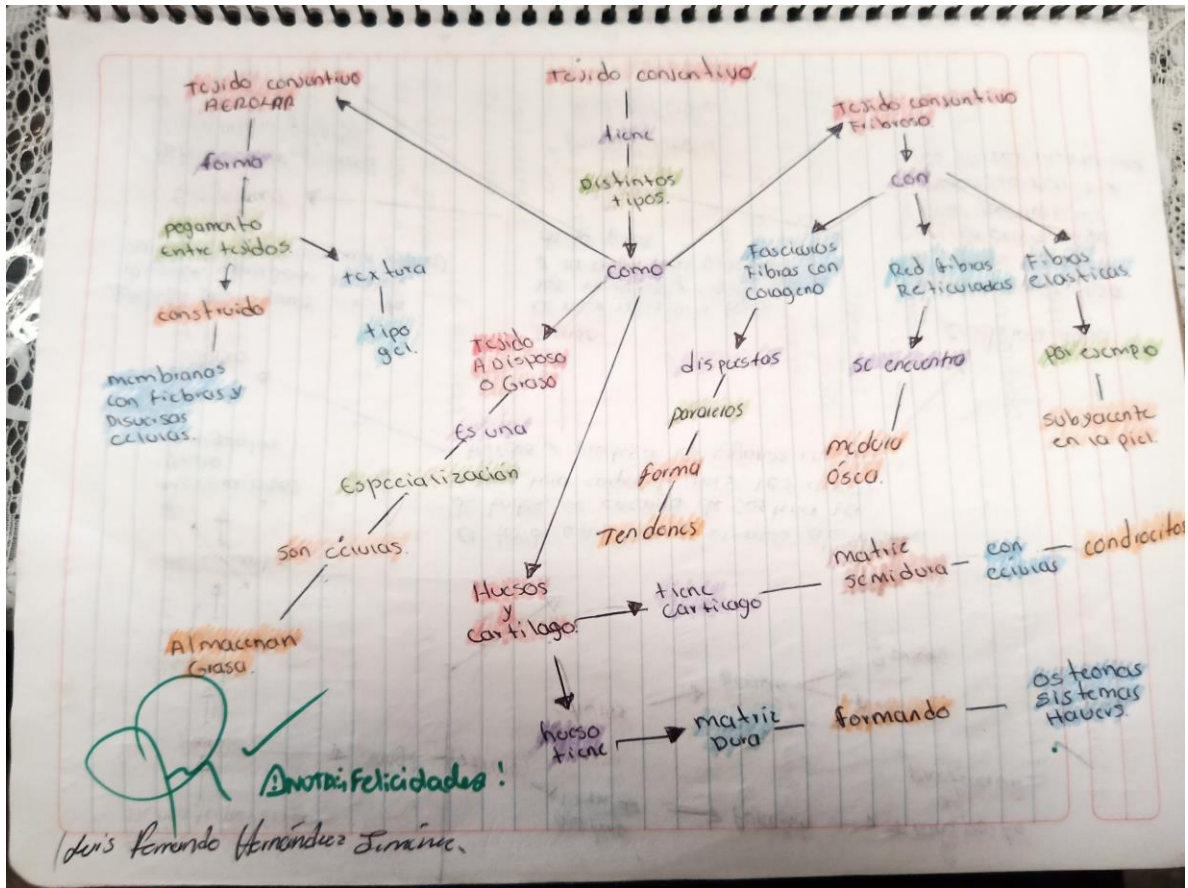 Tejido conjuntivo
AEROLAR
forma
pegamento
Entre tejidos.
construido
membranas
con fiebras y
Disversas
celulas.
textura
tipo
gel.
Tejido conjuntivo.
tiene
Distintos
tipos.
como
Tejido
Adisposo
o Graso
Es una
Especialización
Son células.
Almacenan
Grasa.
Tejido conjuntivo
Fribroso.
con
Fasciculos
Fibras con
Colageno
dispustos
paralelos
forma
Tendenes
Red fibras
Reticuladas
se encuentra
medula
Ósea.
Fibras
elasticas
por ejemplo
subyacente
en la piel.
Huesos
y
cartilago.
tiene
cartilago
matriz
semidura
con
celulas
condrocitos
hueso
tiene
matriz
Dura
formando
Osteonas
sistemas
Havers.
Felicidades!
Luis Fernando Hernández Jiménez.